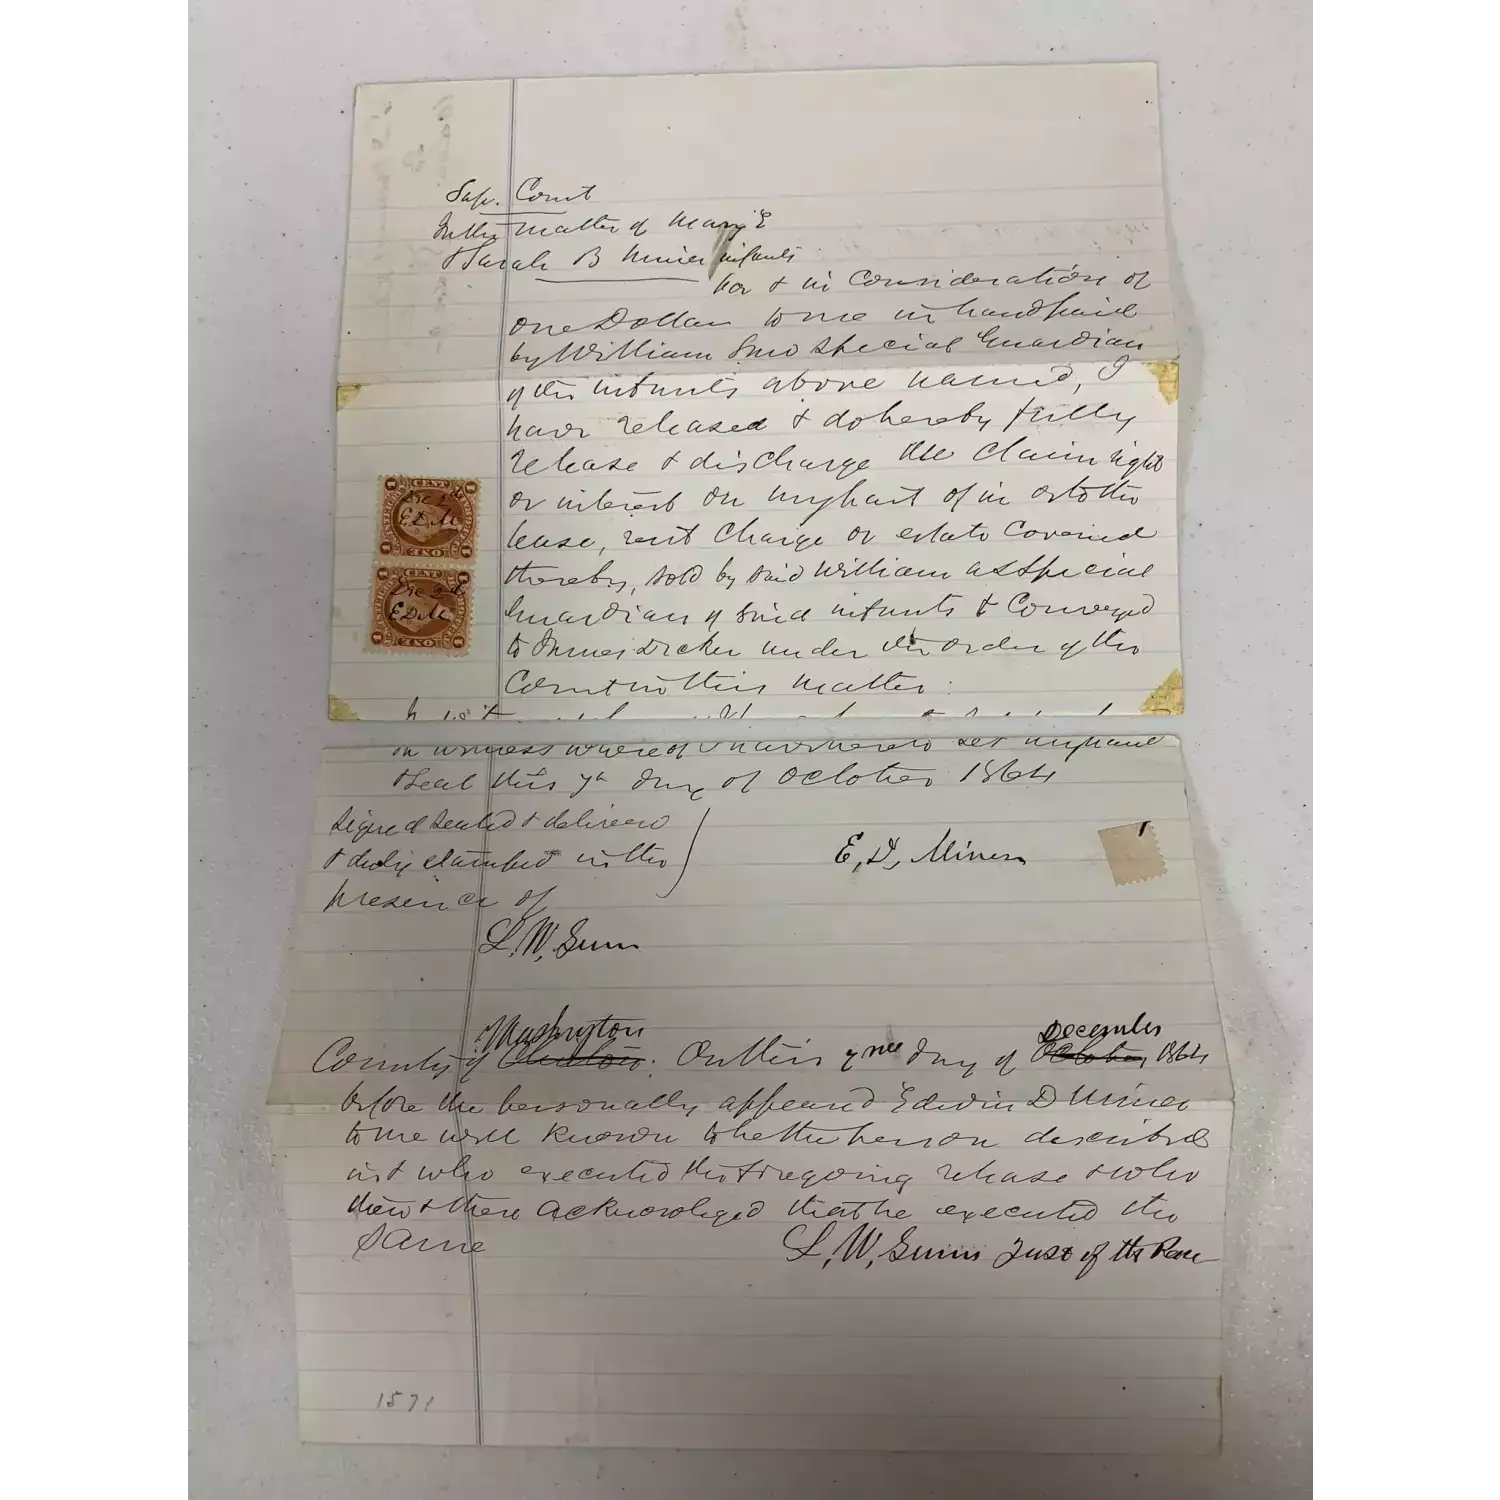 Sup. Court
In the matter of Mary E
& Sarah B Miner infants
For & in Consideration of
one Dollar to me in hand paid
by William special Guardian
of the infants above named, I
have released & do hereby fully
release & discharge the claim right
or interest on my part of in or to the
lease, rent charge or estate covered
thereby, sold by said William as special
Guardian of said infants & Conveyed
to Decker under the order of the
Court in this matter:
In witness whereof I have hereto set my hand
& seal this 7th day of October 1864
signed sealed & delivered
& duly stamped in the
presence of
E, D, Miner
L. W. Gunn
Washington December
County of Clinton: On this day of October 1864
before me personally appeared Edwin D Miner
to me well known to be the person described
in & who executed the foregoing release & who
then & there acknowledged that he executed the
same
L, W, Gunn Just of the Peace
1571
CENT
Dec 2d
E.D.M
ONE
CENT
Dec 2d
E.D.M.
ONE